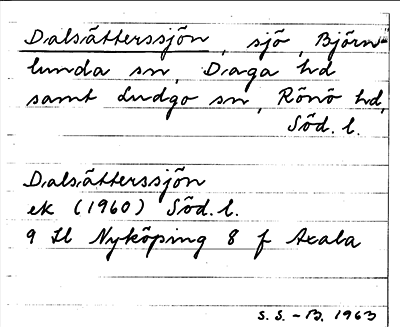 Dalsätterssjön, sjö, Björn-
lunda sn, Daga hd
samt Ludgo sn, Rönö hd,
Söd. l.
Dalsätterssjön
ek (1960) Söd. l.
9 Il Nyköping 8 f Axala
S.S.-B. 1963